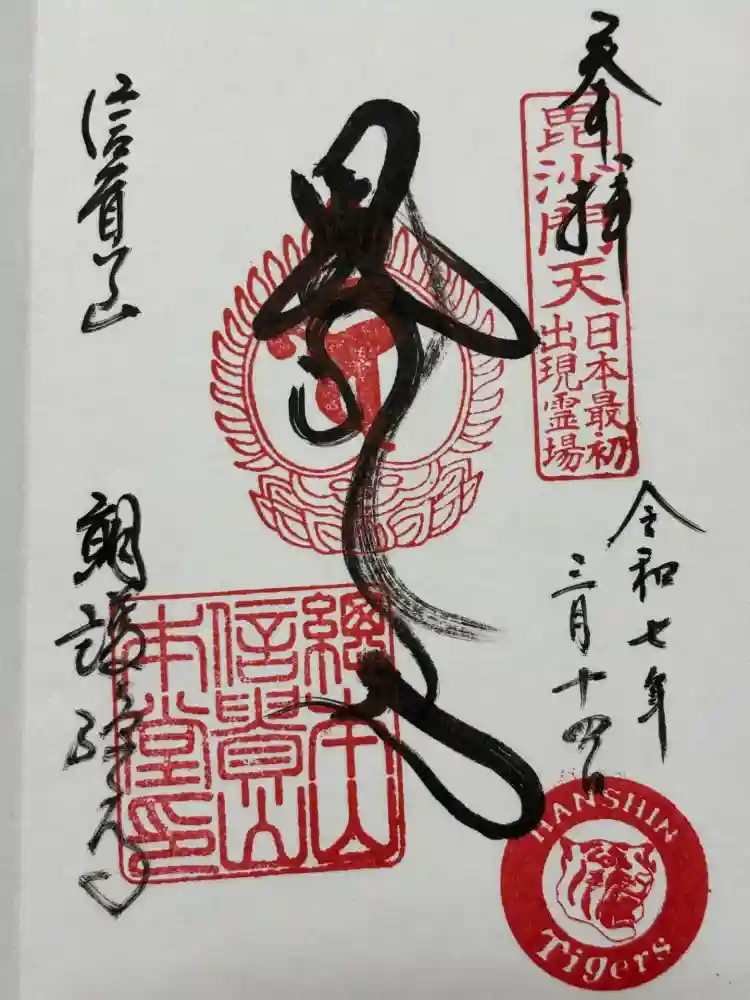 奉拝
毘沙門天
日本最初
出現霊場
令和七年
三月十四日
信貴山
朝護孫子寺
總本山
信貴山
本堂印
HANSHIN
Tigers